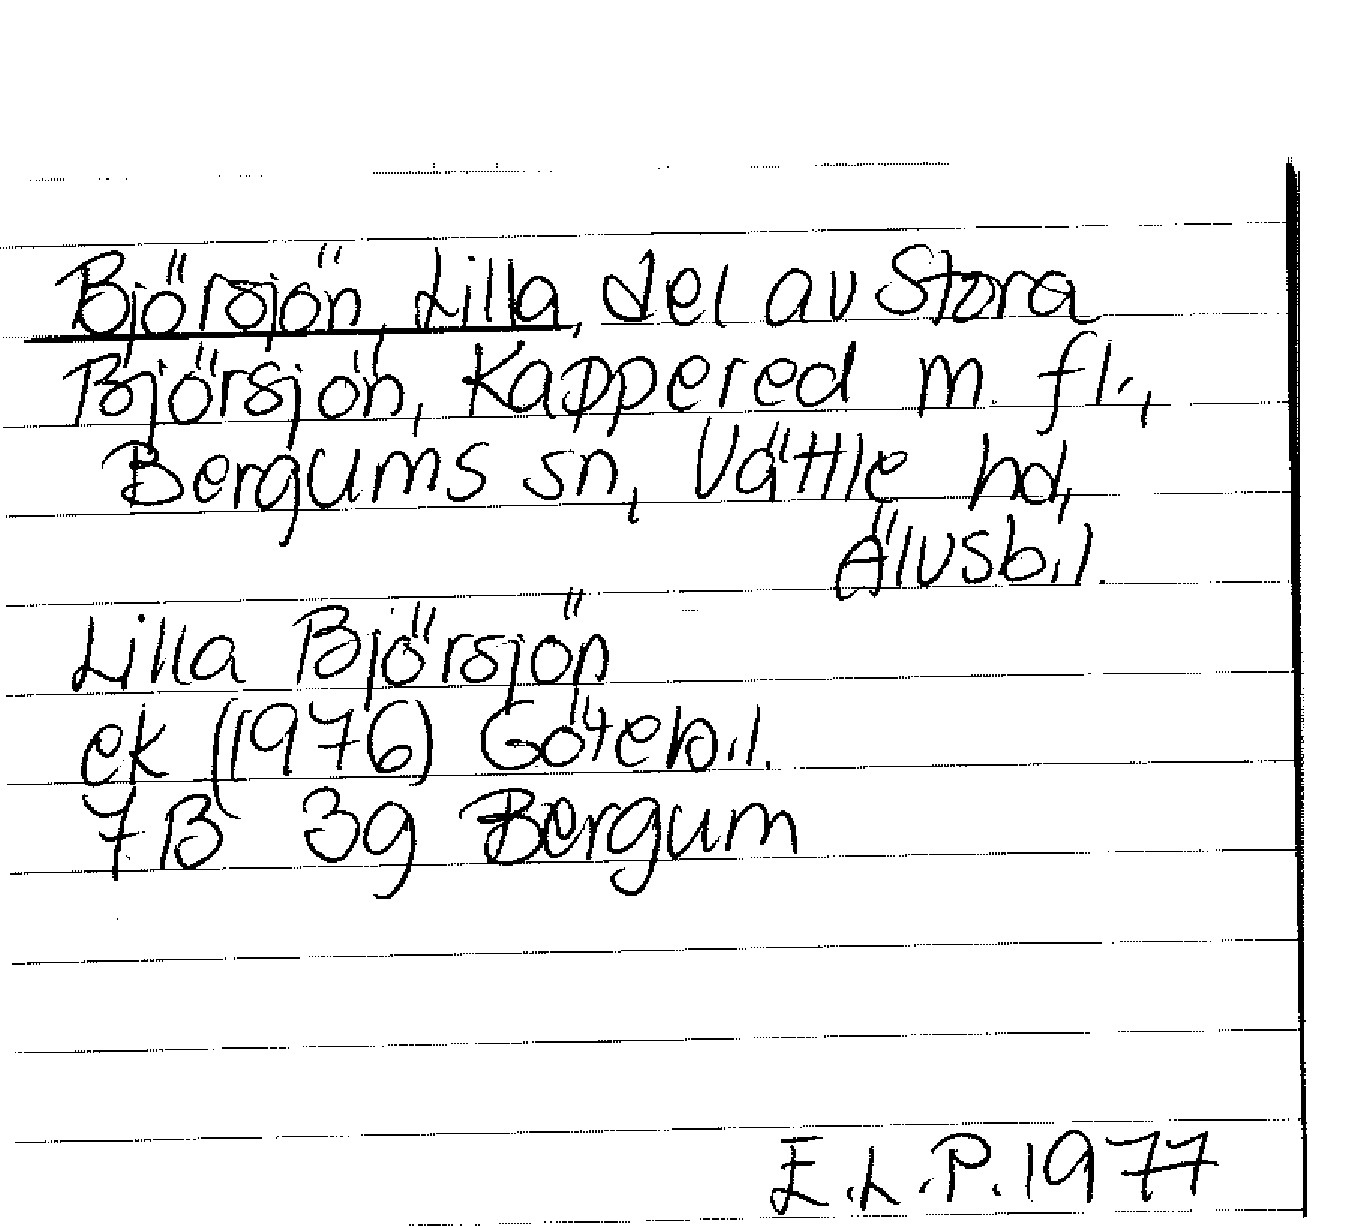 Björsjön, Lilla, del av Stora
Björsjön, Kappered m. fl.,
Bergums sn, Vättle hd,
Älvsb.l.
Lilla Björsjön
ek (1976) Göteb.l.
7B 3g Bergum
E.L.P. 1977